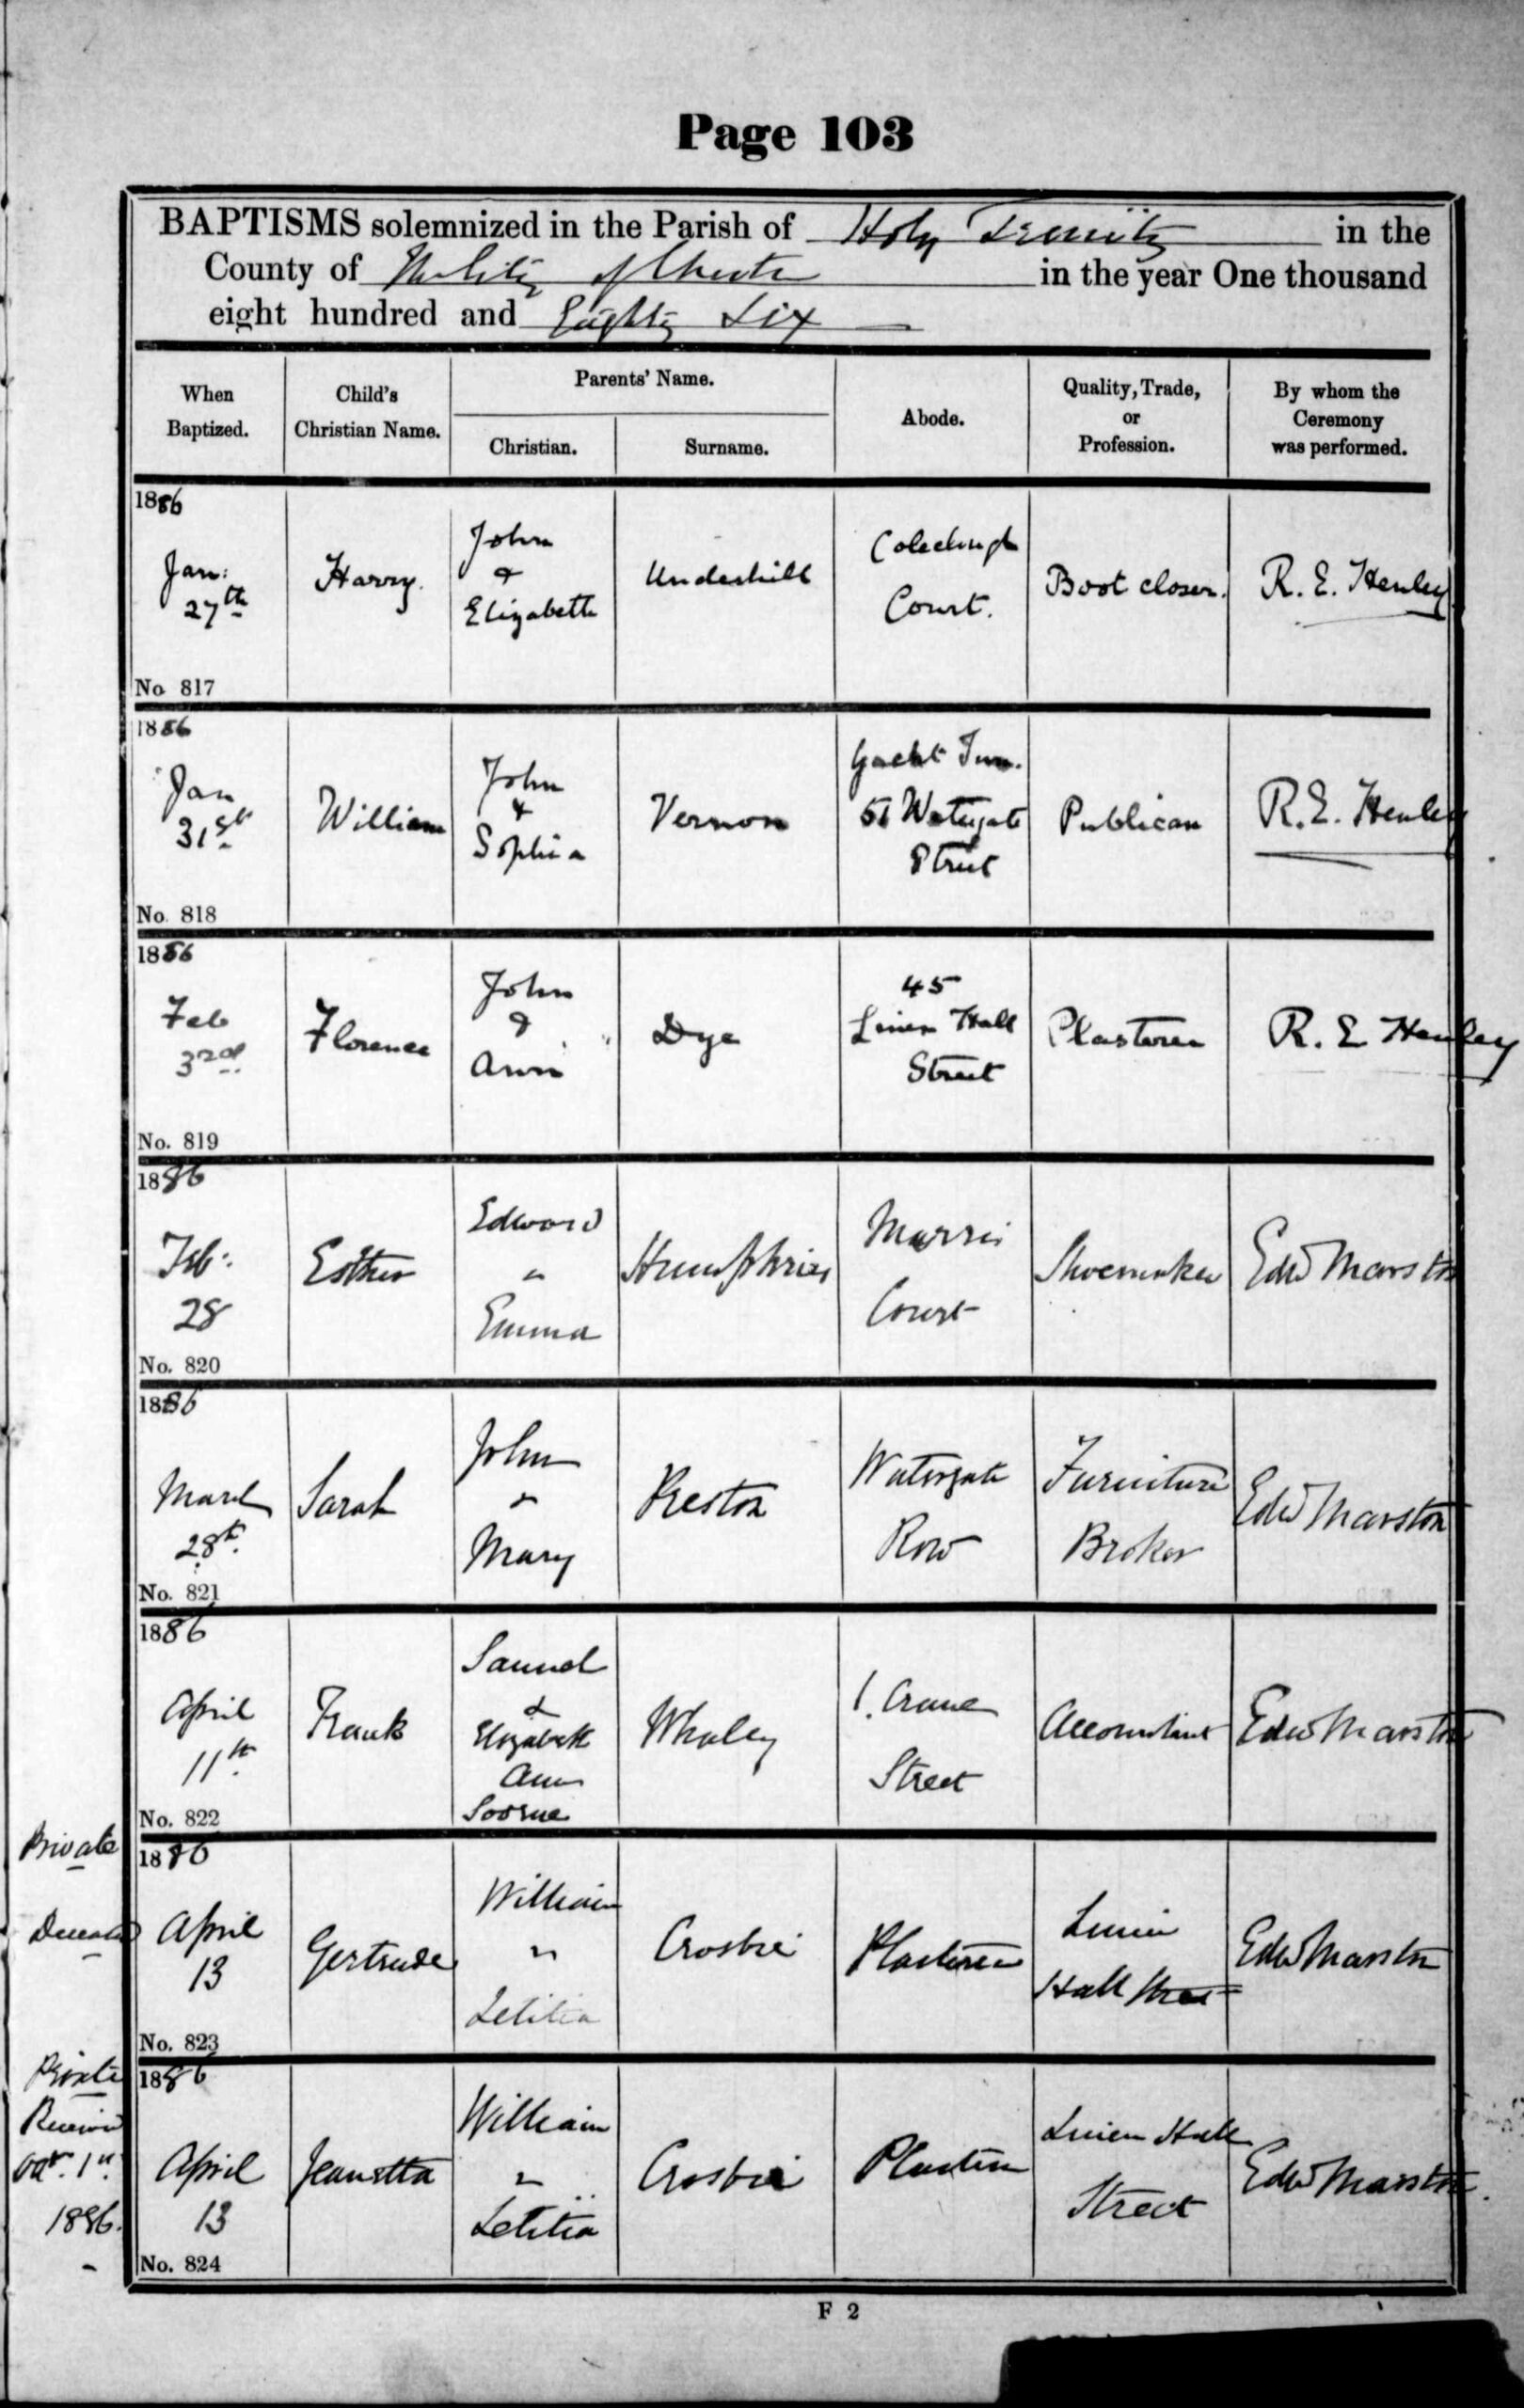 Page 103
BAPTISMS solemnized in the Parish of Holy Trinity in the
County of The City of Chester in the year One thousand
eight hundred and Eighty Six
When Baptized.
Child's Christian Name.
Parents' Name.
Christian.
Surname.
Abode.
Quality, Trade, or Profession.
By whom the Ceremony was performed.
1886
Jan: 27th
Harry.
John & Elizabeth
Underhill
Court.
Boot closer.
R. E. Henley
No. 817
1886
Jan 31st
William
John & Sophia
Vernon
Yacht Inn. 51 Watergate Street
Publican
R. E. Henley
No. 818
1886
Feb 3rd
Florence
John & Ann
Dye
45 Linen Hall Street
Plasterer
R. E Henley
No. 819
1886
Feb: 28
Esther
Edward " Emma
Humphries
Court
Shoemaker
Edwd Marston
No. 820
1886
March 28th
Sarah
John & Mary
Preston
Watergate Row
Furniture Broker
Edwd Marston
No. 821
1886
April 11th
Frank
Samuel & Elizabeth Ann
Whaley
1. Crane Street
Accountant
Edwd Marston
No. 822
Private
1886
April 13
Gertrude
William " Letitia
Crosbie
Plasterer
Linen Hall Street
Edwd Marston
No. 823
Private
Received
Oct. 1st
1886.
1886
April 13
Jeanetta
William " Letitia
Crosbie
Plasterer
Linen Hall Street
Edwd Marston.
No. 824
F 2